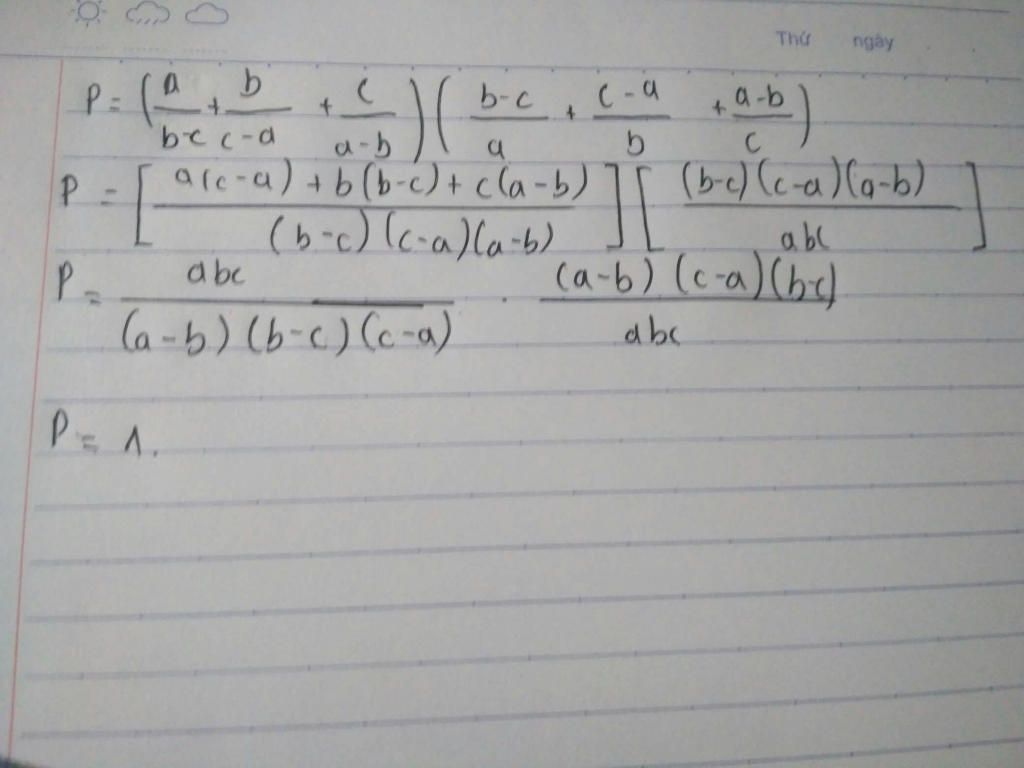 Thứ ngày
P = (a/(b-c) + b/(c-a) + c/(a-b)) ((b-c)/a + (c-a)/b + (a-b)/c)
P = [(a(c-a) + b(b-c) + c(a-b))/((b-c)(c-a)(a-b))] [((b-c)(c-a)(a-b))/(abc)]
P = abc/((a-b)(b-c)(c-a)) . ((a-b)(c-a)(b-c))/(abc)
P = 1.